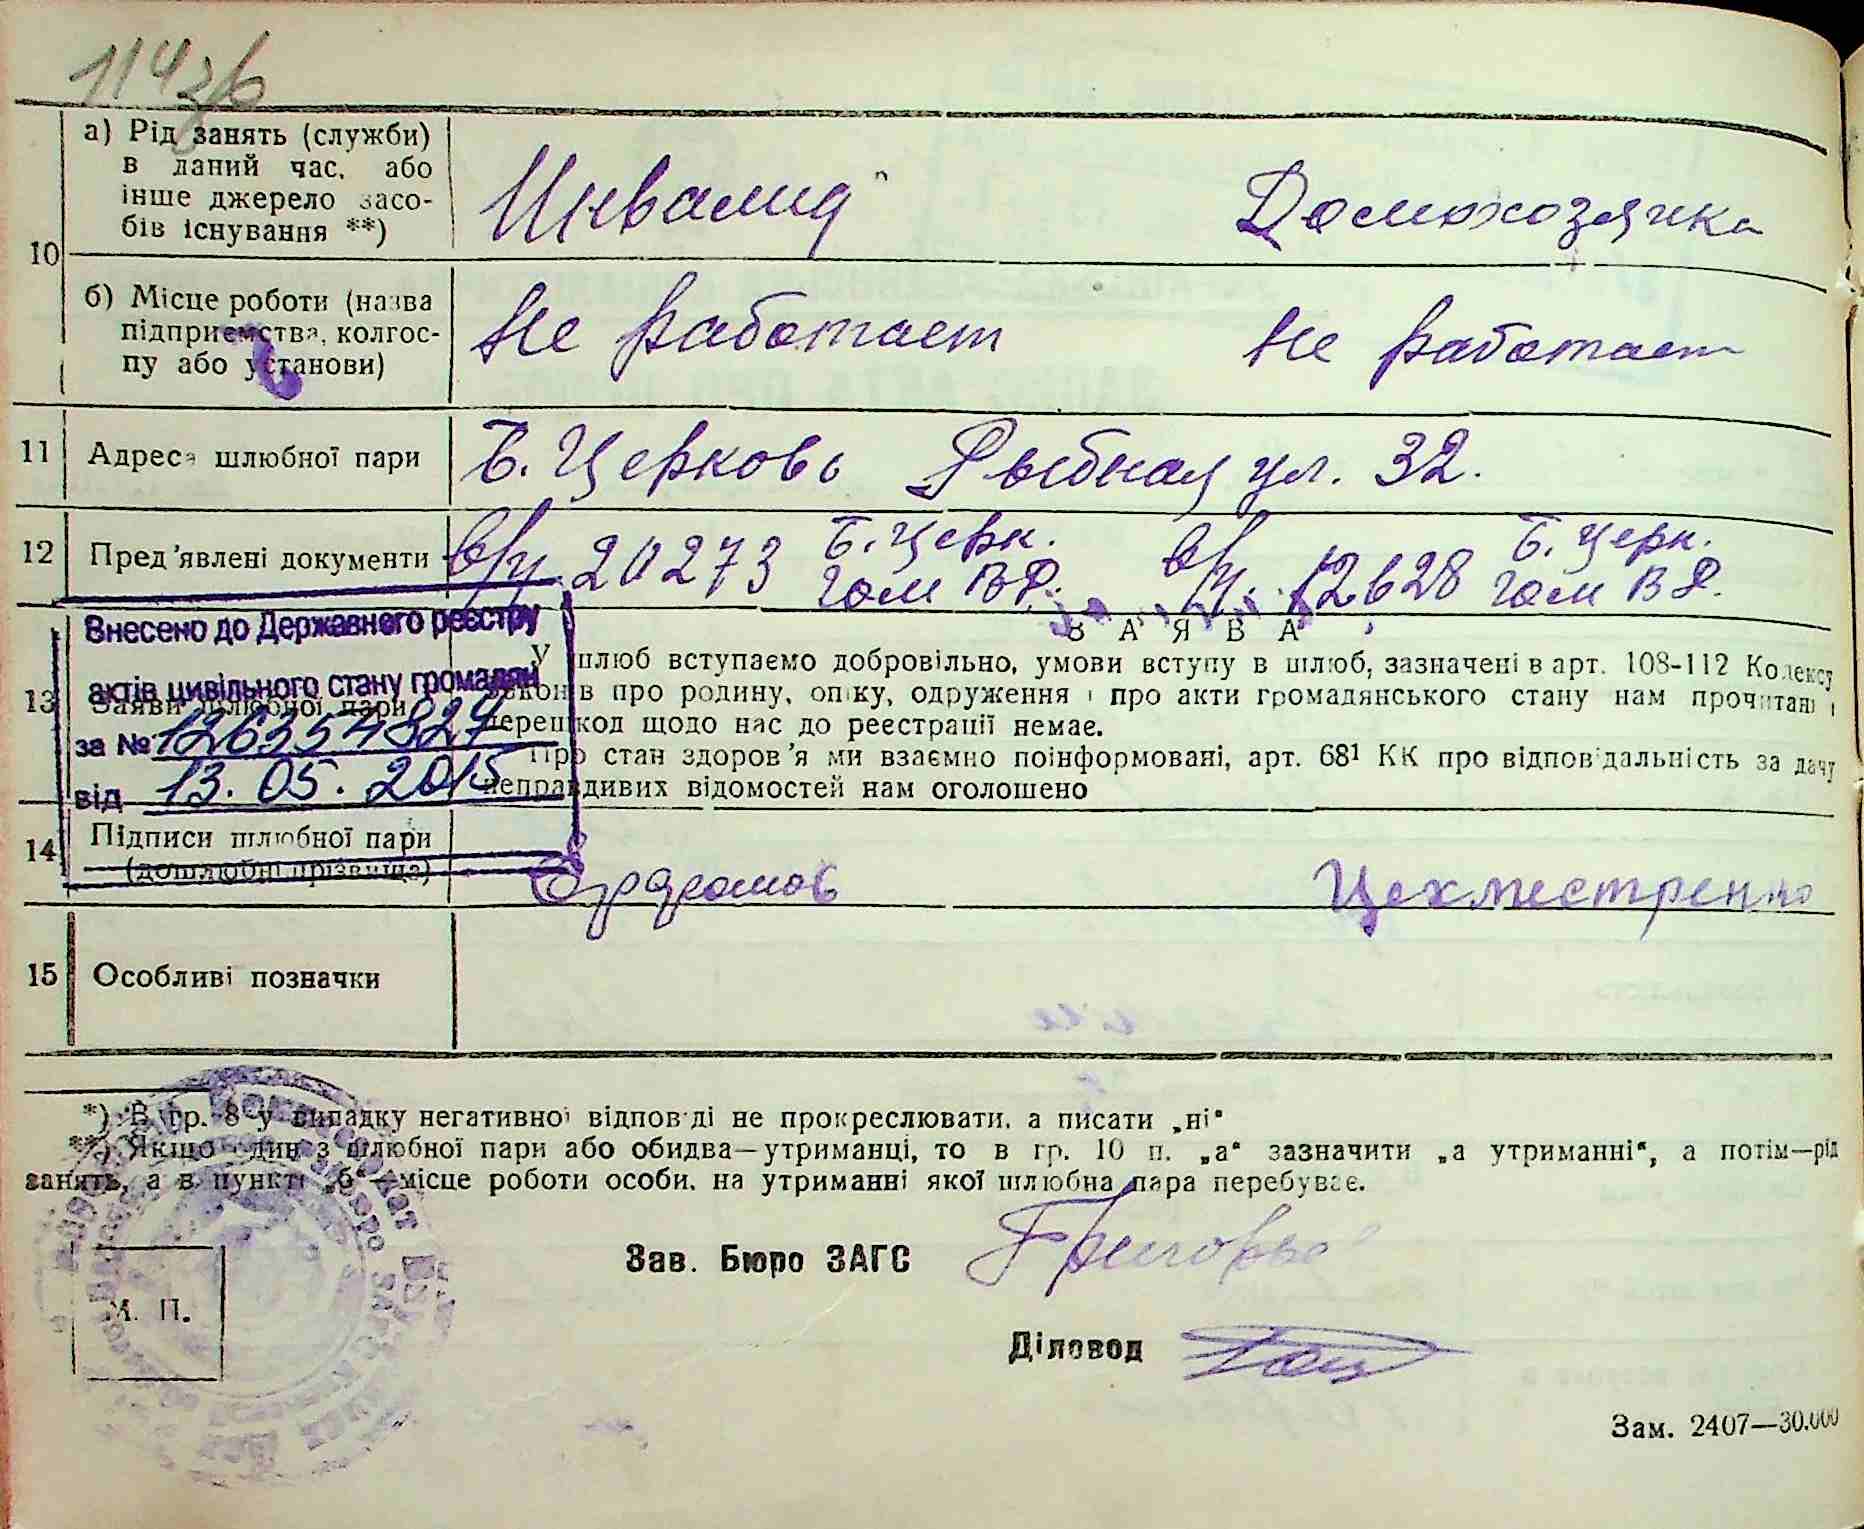 114 зб
10
а) Рід занять (служби)
в даний час, або
інше джерело засо-
бів існування **)
Инвалид
Домохозяика
б) Місце роботи (назва
підприємства, колгос-
пу або установи)
Не работает
Не работает
11
Адреса шлюбної пари
Б. Церковь Рыбная ул. 32.
12
Пред'явлені документи
в/у 20273 Б. Церк.
гом ВД.
12628 Б. Церк.
гом ВД.
Внесено до Державного реєстру
актів цивільного стану громадян
за № 1263554827
від 13. 05. 2015
13
Заяви шлюбної пари
ЗАЯВА
У шлюб вступаємо добровільно, умови вступу в шлюб, зазначені в арт. 108-112 Кодексу
законів про родину, опіку, одруження і про акти громадянського стану нам прочитані і
перешкод щодо нас до реєстрації немає.
Про стан здоров'я ми взаємно поінформовані, арт. 68¹ КК про відповідальність за дачу
неправдивих відомостей нам оголошено
14
Підписи шлюбної пари
(дошлюбні прізвища)
Цехместренко
15
Особливі позначки
*) В гр. 8 у випадку негативної відповіді не прокреслювати, а писати „ні“
**) Якщо один з шлюбної пари або обидва—утриманці, то в гр. 10 п. „а“ зазначити „а утриманні“, а потім—рід
занять, а в пункті „б“—місце роботи особи, на утриманні якої шлюбна пара перебуває.
Зав. Бюро ЗАГС
М. П.
Діловод
Зам. 2407—30.000